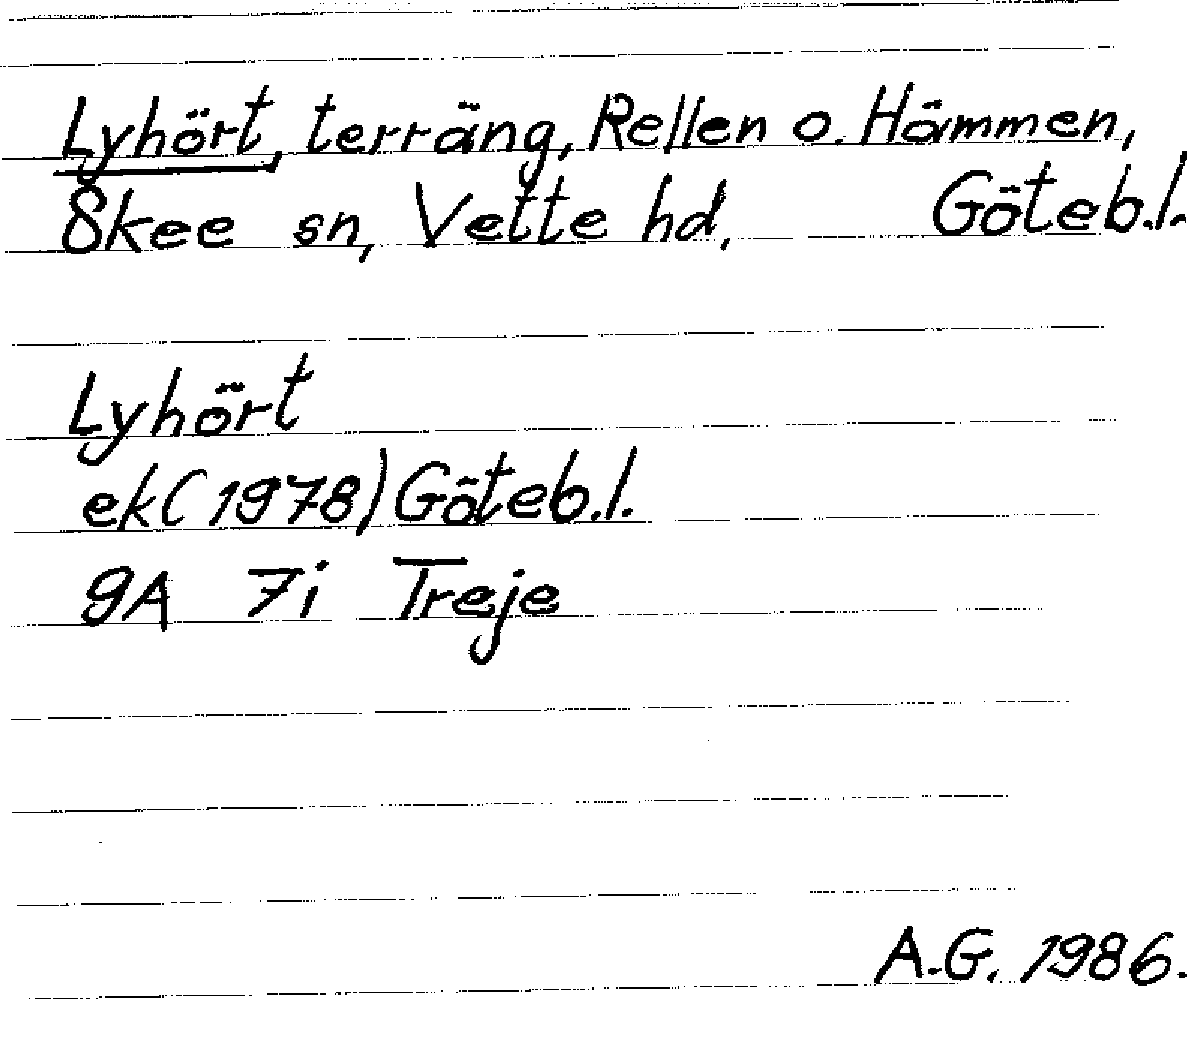 Lyhört, terräng, Rellen o. Hämmen,
Skee sn, Vette hd, Göteb.l.
Lyhört
ek (1978) Göteb.l.
9A 7i Treje
A.G. 1986.